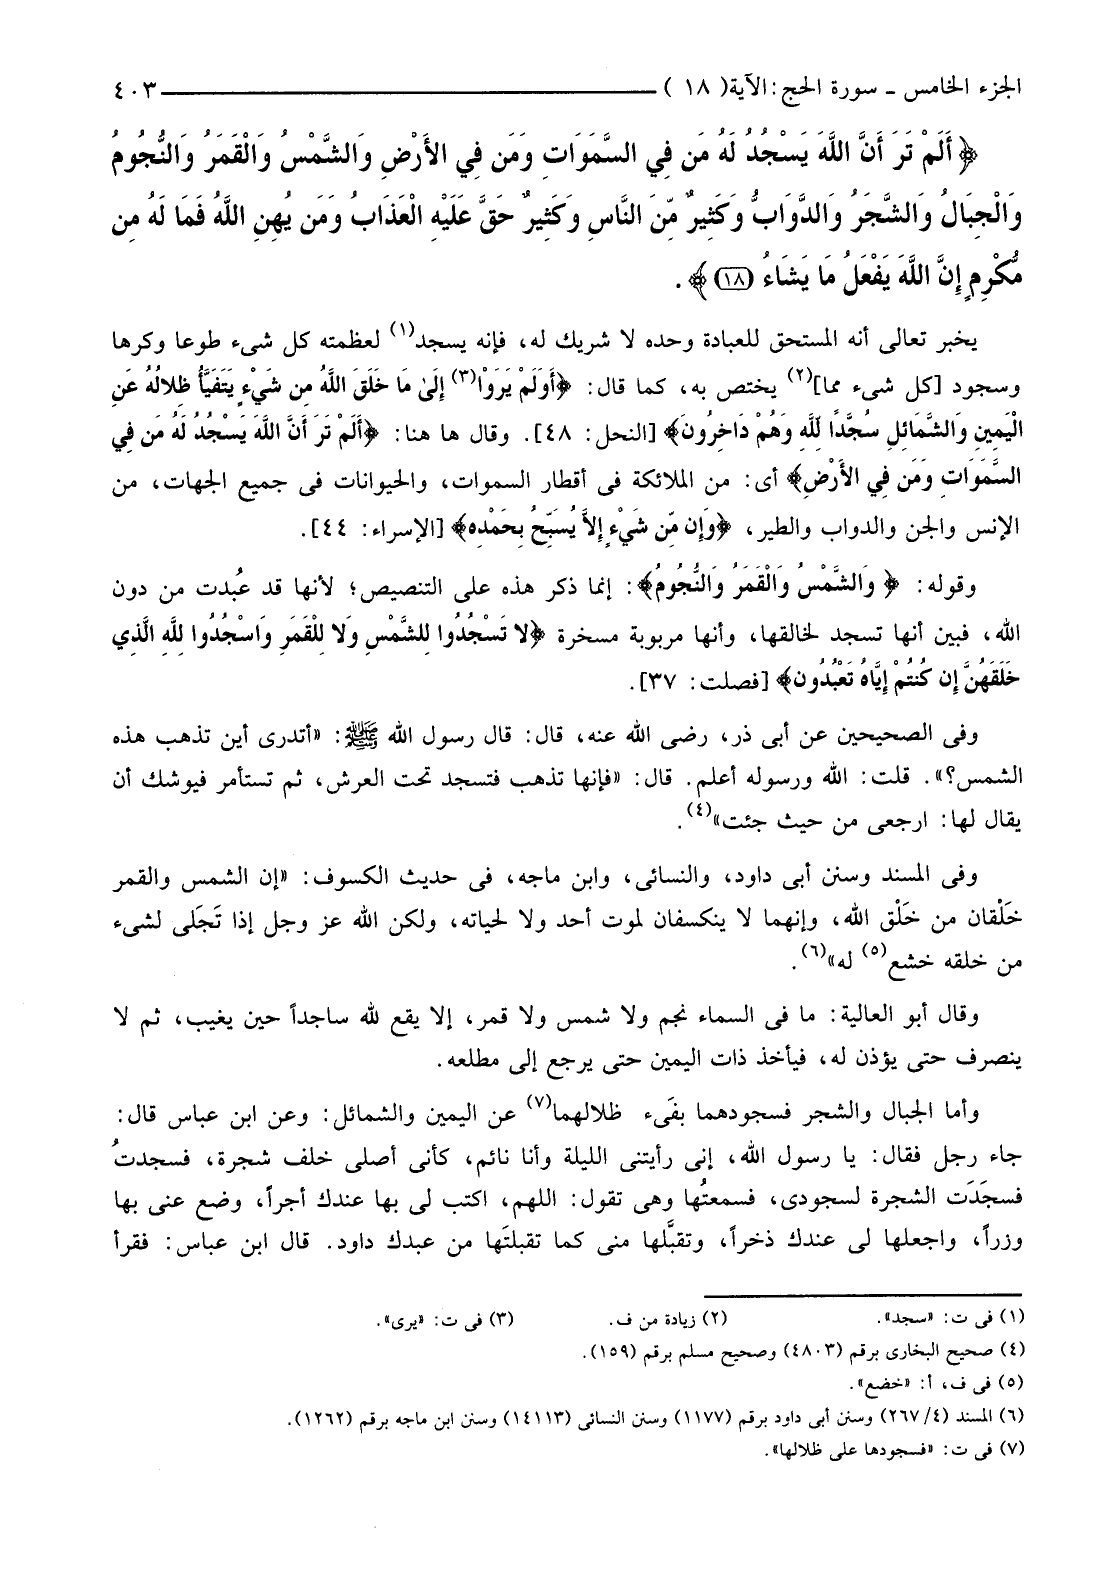 الجزء الخامس ـ سورة الحج : الآية( ١٨ ) ٤٠٣
﴿ أَلَمْ تَرَ أَنَّ اللَّهَ يَسْجُدُ لَهُ مَن فِي السَّمَوَاتِ وَمَن فِي الأَرْضِ وَالشَّمْسُ وَالْقَمَرُ وَالنُّجُومُ
وَالْجِبَالُ وَالشَّجَرُ وَالدَّوَابُّ وَكَثِيرٌ مِّنَ النَّاسِ وَكَثِيرٌ حَقَّ عَلَيْهِ الْعَذَابُ وَمَن يُهِنِ اللَّهُ فَمَا لَهُ مِن
مُّكْرِمٍ إِنَّ اللَّهَ يَفْعَلُ مَا يَشَاءُ (١٨) ﴾ .
يخبر تعالى أنه المستحق للعبادة وحده لا شريك له، فإنه يسجد(١) لعظمته كل شىء طوعا وكرها
وسجود [كل شىء مما](٢) يختص به، كما قال: ﴿أَوَلَمْ يَرَوْا(٣) إِلَىٰ مَا خَلَقَ اللَّهُ مِن شَيْءٍ يَتَفَيَّأُ ظِلالُهُ عَنِ
الْيَمِينِ وَالشَّمَائِلِ سُجَّدًا لِّلَّهِ وَهُمْ دَاخِرُونَ﴾ [النحل: ٤٨]. وقال ها هنا: ﴿أَلَمْ تَرَ أَنَّ اللَّهَ يَسْجُدُ لَهُ مَن فِي
السَّمَوَاتِ وَمَن فِي الأَرْضِ﴾ أى: من الملائكة فى أقطار السموات، والحيوانات فى جميع الجهات، من
الإنس والجن والدواب والطير، ﴿وَإِن مِّن شَيْءٍ إِلاَّ يُسَبِّحُ بِحَمْدِهِ﴾ [الإسراء: ٤٤].
وقوله: ﴿ وَالشَّمْسُ وَالْقَمَرُ وَالنُّجُومُ﴾: إنما ذكر هذه على التنصيص؛ لأنها قد عُبدت من دون
الله، فبين أنها تسجد لخالقها، وأنها مربوبة مسخرة ﴿لا تَسْجُدُوا لِلشَّمْسِ وَلا لِلْقَمَرِ وَاسْجُدُوا لِلَّهِ الَّذِي
خَلَقَهُنَّ إِن كُنتُمْ إِيَّاهُ تَعْبُدُونَ﴾ [فصلت: ٣٧].
وفى الصحيحين عن أبى ذر، رضى الله عنه، قال: قال رسول الله ﷺ: «أتدرى أين تذهب هذه
الشمس؟». قلت: الله ورسوله أعلم. قال: «فإنها تذهب فتسجد تحت العرش، ثم تستأمر فيوشك أن
يقال لها: ارجعى من حيث جئت»(٤).
وفى المسند وسنن أبى داود، والنسائى، وابن ماجه، فى حديث الكسوف: «إن الشمس والقمر
خَلْقان من خَلْق الله، وإنهما لا ينكسفان لموت أحد ولا لحياته، ولكن الله عز وجل إذا تَجَلى لشىء
من خلقه خشع(٥) له»(٦).
وقال أبو العالية: ما فى السماء نجم ولا شمس ولا قمر، إلا يقع لله ساجداً حين يغيب، ثم لا
ينصرف حتى يؤذن له، فيأخذ ذات اليمين حتى يرجع إلى مطلعه.
وأما الجبال والشجر فسجودهما بفَىء ظلالهما(٧) عن اليمين والشمائل: وعن ابن عباس قال:
جاء رجل فقال: يا رسول الله، إنى رأيتنى الليلة وأنا نائم، كأنى أصلى خلف شجرة، فسجدتُ
فسجَدَت الشجرة لسجودى، فسمعتُها وهى تقول: اللهم، اكتب لى بها عندك أجراً، وضع عنى بها
وزراً، واجعلها لى عندك ذخراً، وتقبَّلها منى كما تقبلتَها من عبدك داود. قال ابن عباس: فقرأ
(١) فى ت: «سجد». (٢) زيادة من ف. (٣) فى ت: «يرى».
(٤) صحيح البخارى برقم (٤٨٠٣) وصحيح مسلم برقم (١٥٩).
(٥) فى ف، أ: «خضع».
(٦) المسند (٤/ ٢٦٧) وسنن أبى داود برقم (١١٧٧) وسنن النسائى (١٤١١٣) وسنن ابن ماجه برقم (١٢٦٢).
(٧) فى ت: «فسجودها على ظلالها».